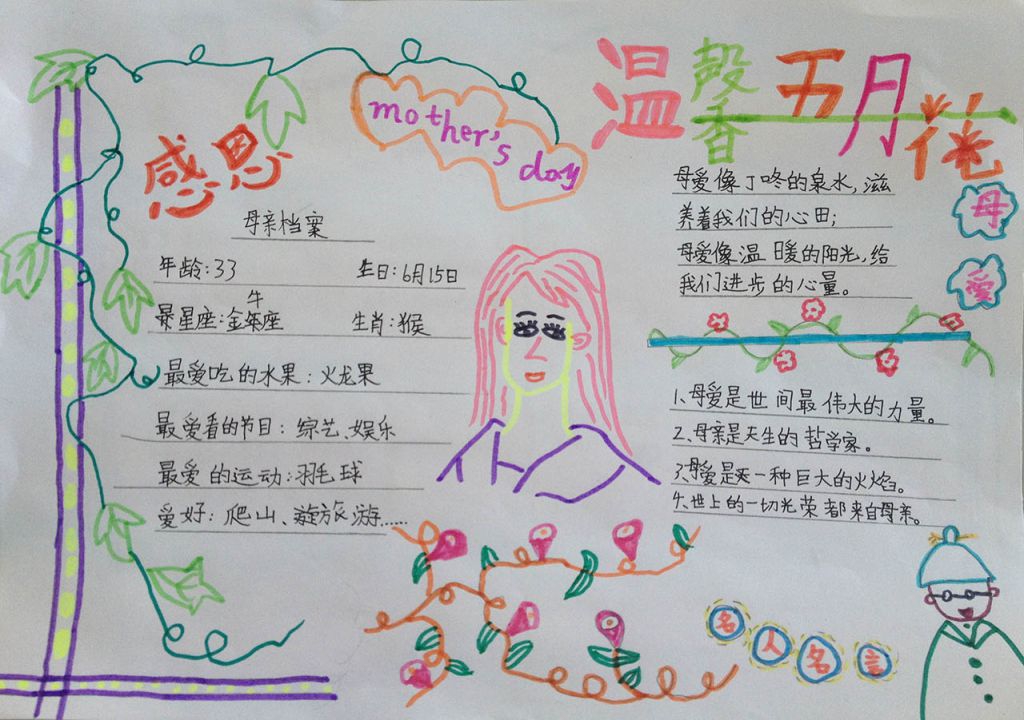 温馨五月花
感恩
mother's
day
母亲档案
年龄:33 生日:6月15日
最星座:金牛座 生肖:猴
最爱吃的水果:火龙果
最爱看的节目:综艺、娱乐
最爱的运动:羽毛球
爱好:爬山、旅游……
母爱像丁咚的泉水,滋
养着我们的心田;
母爱像温暖的阳光,给
我们进步的心量。
母
爱
1、母爱是世间最伟大的力量。
2、母亲是天生的哲学家。
3、母爱是一种巨大的火焰。
4、世上的一切光荣都来自母亲。
名人名言